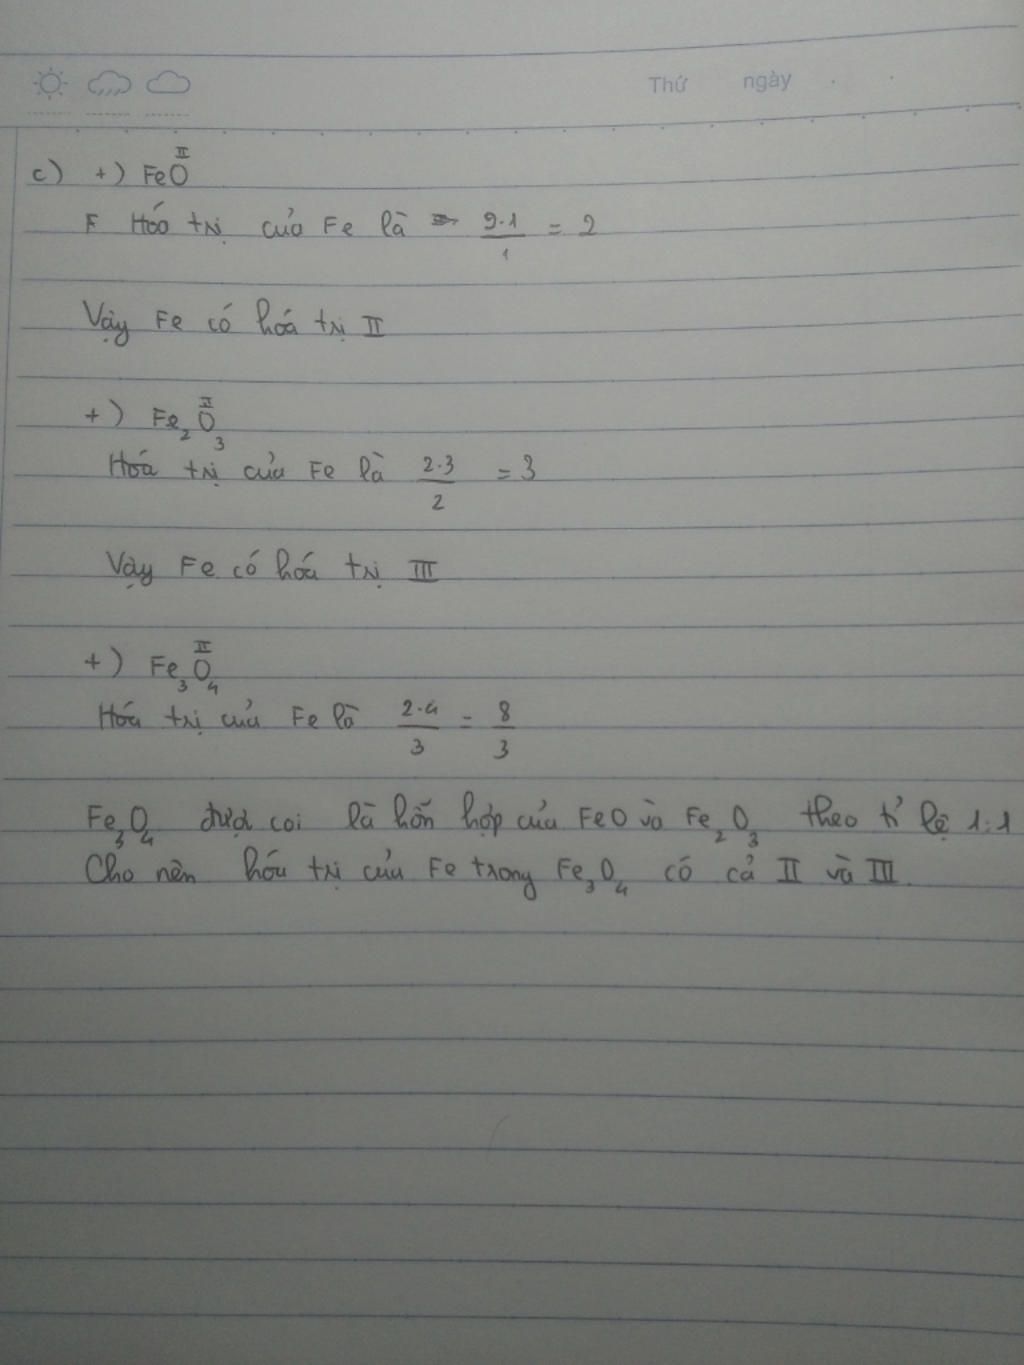 Thứ ngày
c) +) FeO II
F Hóa trị của Fe là 2·1/1 = 2
Vậy Fe có hoá trị II
+) Fe₂O₃ II
Hóa trị của Fe là 2·3/2 = 3
Vậy Fe có hóa trị III
+) Fe₃O₄ II
Hóa trị của Fe là 2·4/3 = 8/3
Fe₃O₄ được coi là hỗn hợp của FeO và Fe₂O₃ theo tỉ lệ 1:1
Cho nên hóa trị của Fe trong Fe₃O₄ có cả II và III.